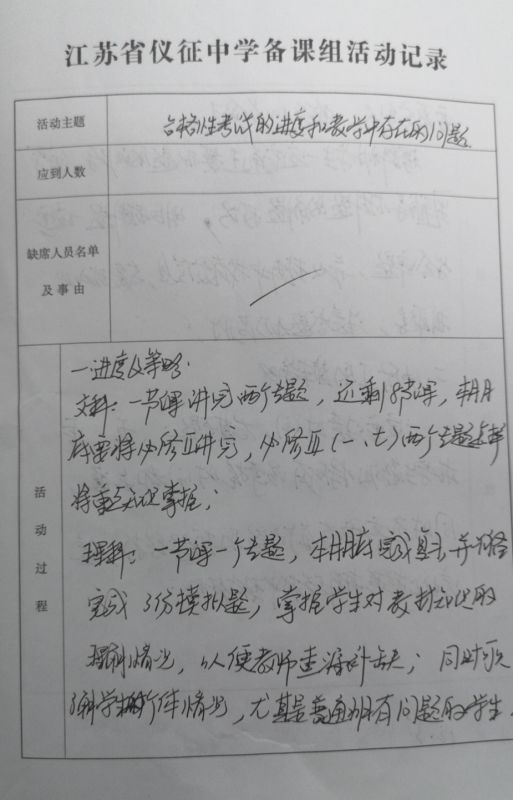 江苏省仪征中学备课组活动记录
活动主题
合格性考试的进度和教学中存在的问题
应到人数
缺席人员名单
及事由
活动过程
一进度及策略.
文科:一节课讲完两个专题,还剩8节课,本月
底要将必修Ⅲ讲完,必修Ⅱ(一、七)两个专题
将重点知识掌握;
理科:一节课一个专题,本月底完成复习并
完成3份模拟题,掌握学生对教材知识的
理解情况,以便教师查漏补缺;同时
了解学生情况,尤其是有问题的学生